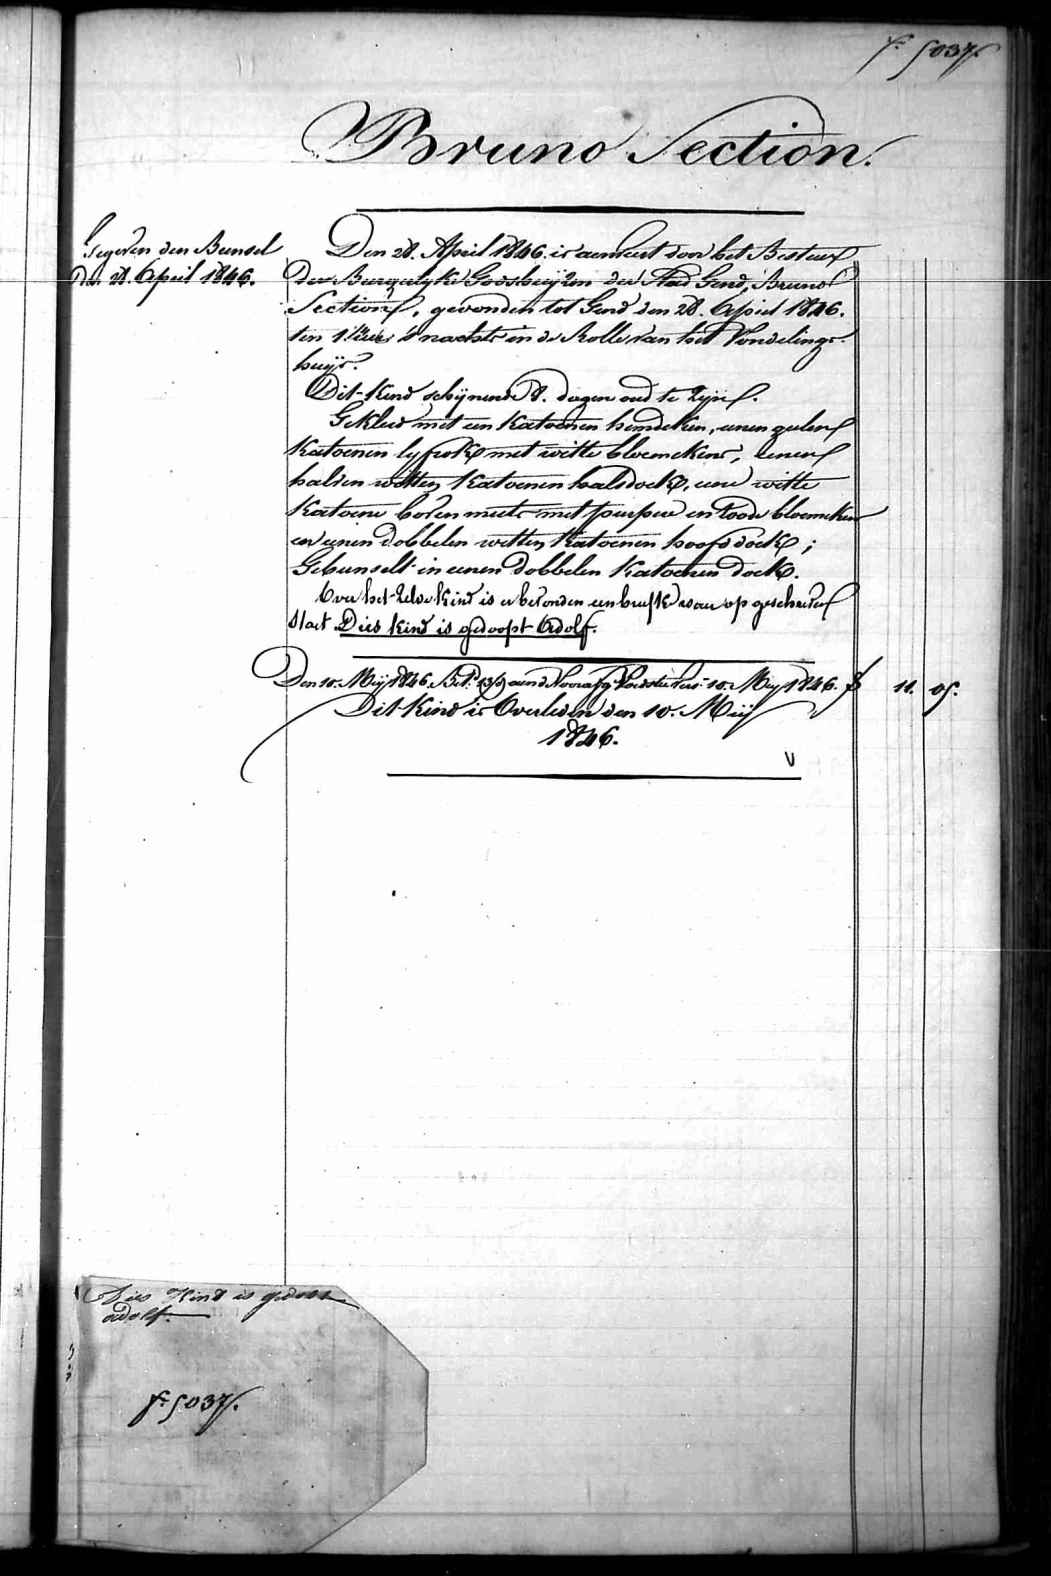 f.º 5037.
Bruno Section.
Gegeven den Bunsel
Den 28. April 1846.
Den 28. April 1846. is aenveert door het Bestuer
Der Burgelyke Godshuyzen der Stad Gend, Bruno
Section, gevonden tot Gend den 28. April 1846.
ten 1 Ure 's nachts in de Rolle van het Vondelings-
huys.
Dit Kind schynende 8. dagen oud te zyn.
Gekleed met een Katoenen hemdeken, eenen gelen
Katoenen lyfrok met witte bloemekens, eenen
halven witten Katoenen halsdoek, eene witte
Katoene boven muts met purpere en roode bloemekens
en eenen dobbelen witten Katoenen hoofddoek;
Gebunselt in eenen dobbelen Katoenen doek.
Over het zelve kind is er bevonden een briefke waer op geschreven
staet Dies kind is gedoopt Adolf.
Den 10. Mey 1846. Bet. aende Voedster 10. Mey 1846. f 11. 05.
Dit Kind is Overleden den 10. Mey
1846.
V
Dies Kind is gedoos
adolf.
f.º 5037.